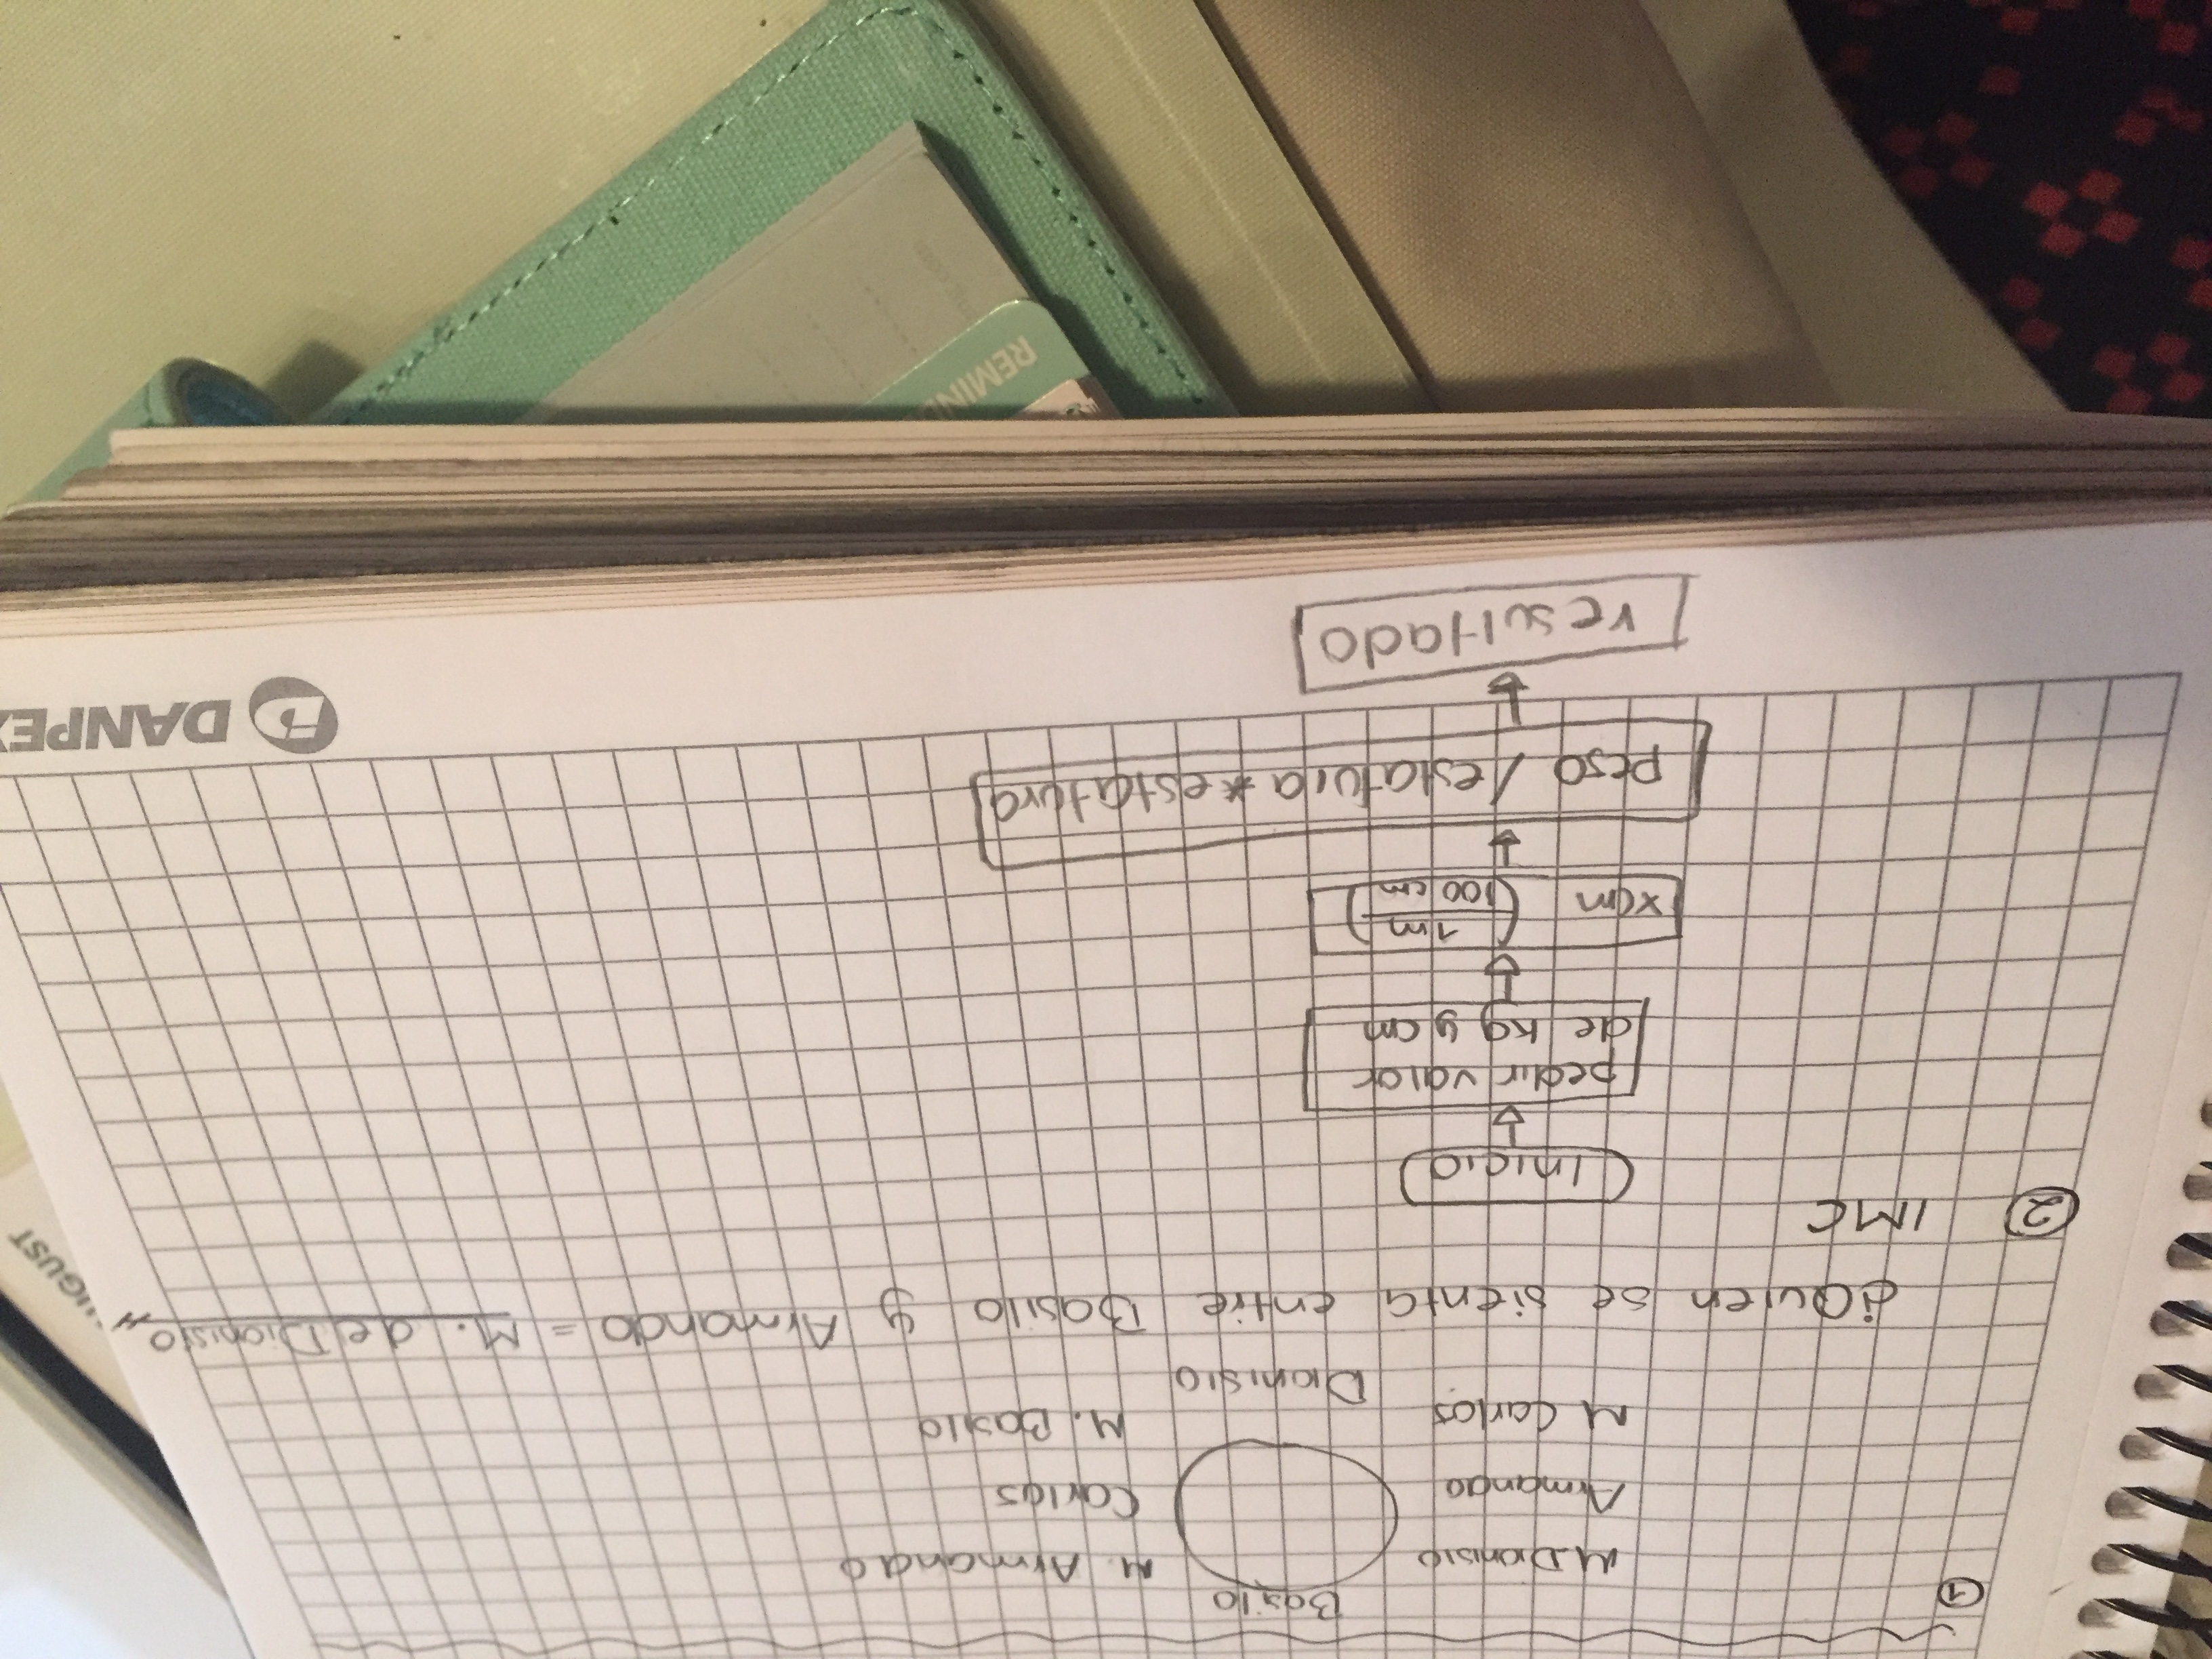 1
Basilo
M. Dionisio
M. Armando
Armando
Carlos
M Carlos
M. Basilo
Dionisio
¿Quien se sienta entre Basilo y Armando = M. de Dionisio
2 IMC
Inicio
pedir valor
de kg y cm
xcm (1m
100 cm)
peso / estatura * estatura
resultado
DANPEX
AUGUST